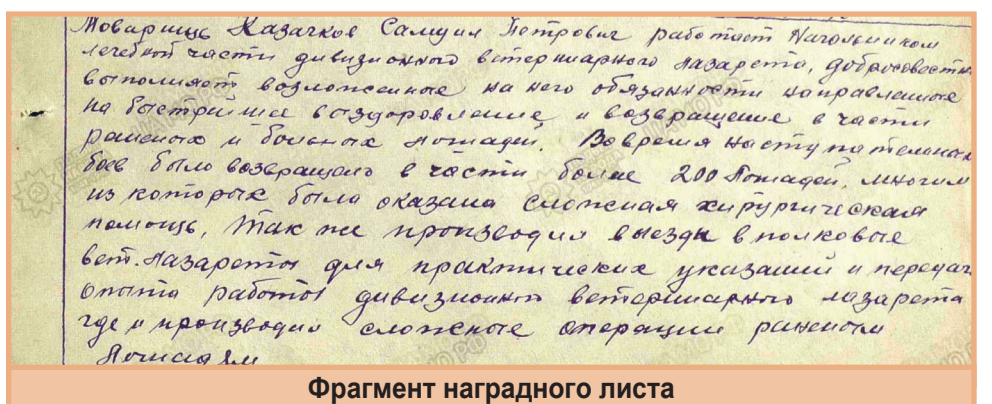 Товарищ Казачков Самуил Петрович работает Начальником
лечебной части дивизионного ветеринарного лазарета, добросовестно
выполняет возложенные на него обязанности направленные
на быстрейшее выздоровление и возвращение в части
раненых и больных лошадей. Вовремя наступательных
боев было возвращено в части более 200 лошадей, многим
из которых была оказана сложная хирургическая
помощь, так же производил выезды в полковые
вет. лазареты для практических указаний и передачи
опыта работы дивизионного ветеринарного лазарета
где и производил сложные операции раненым
лошадям
Фрагмент наградного листа